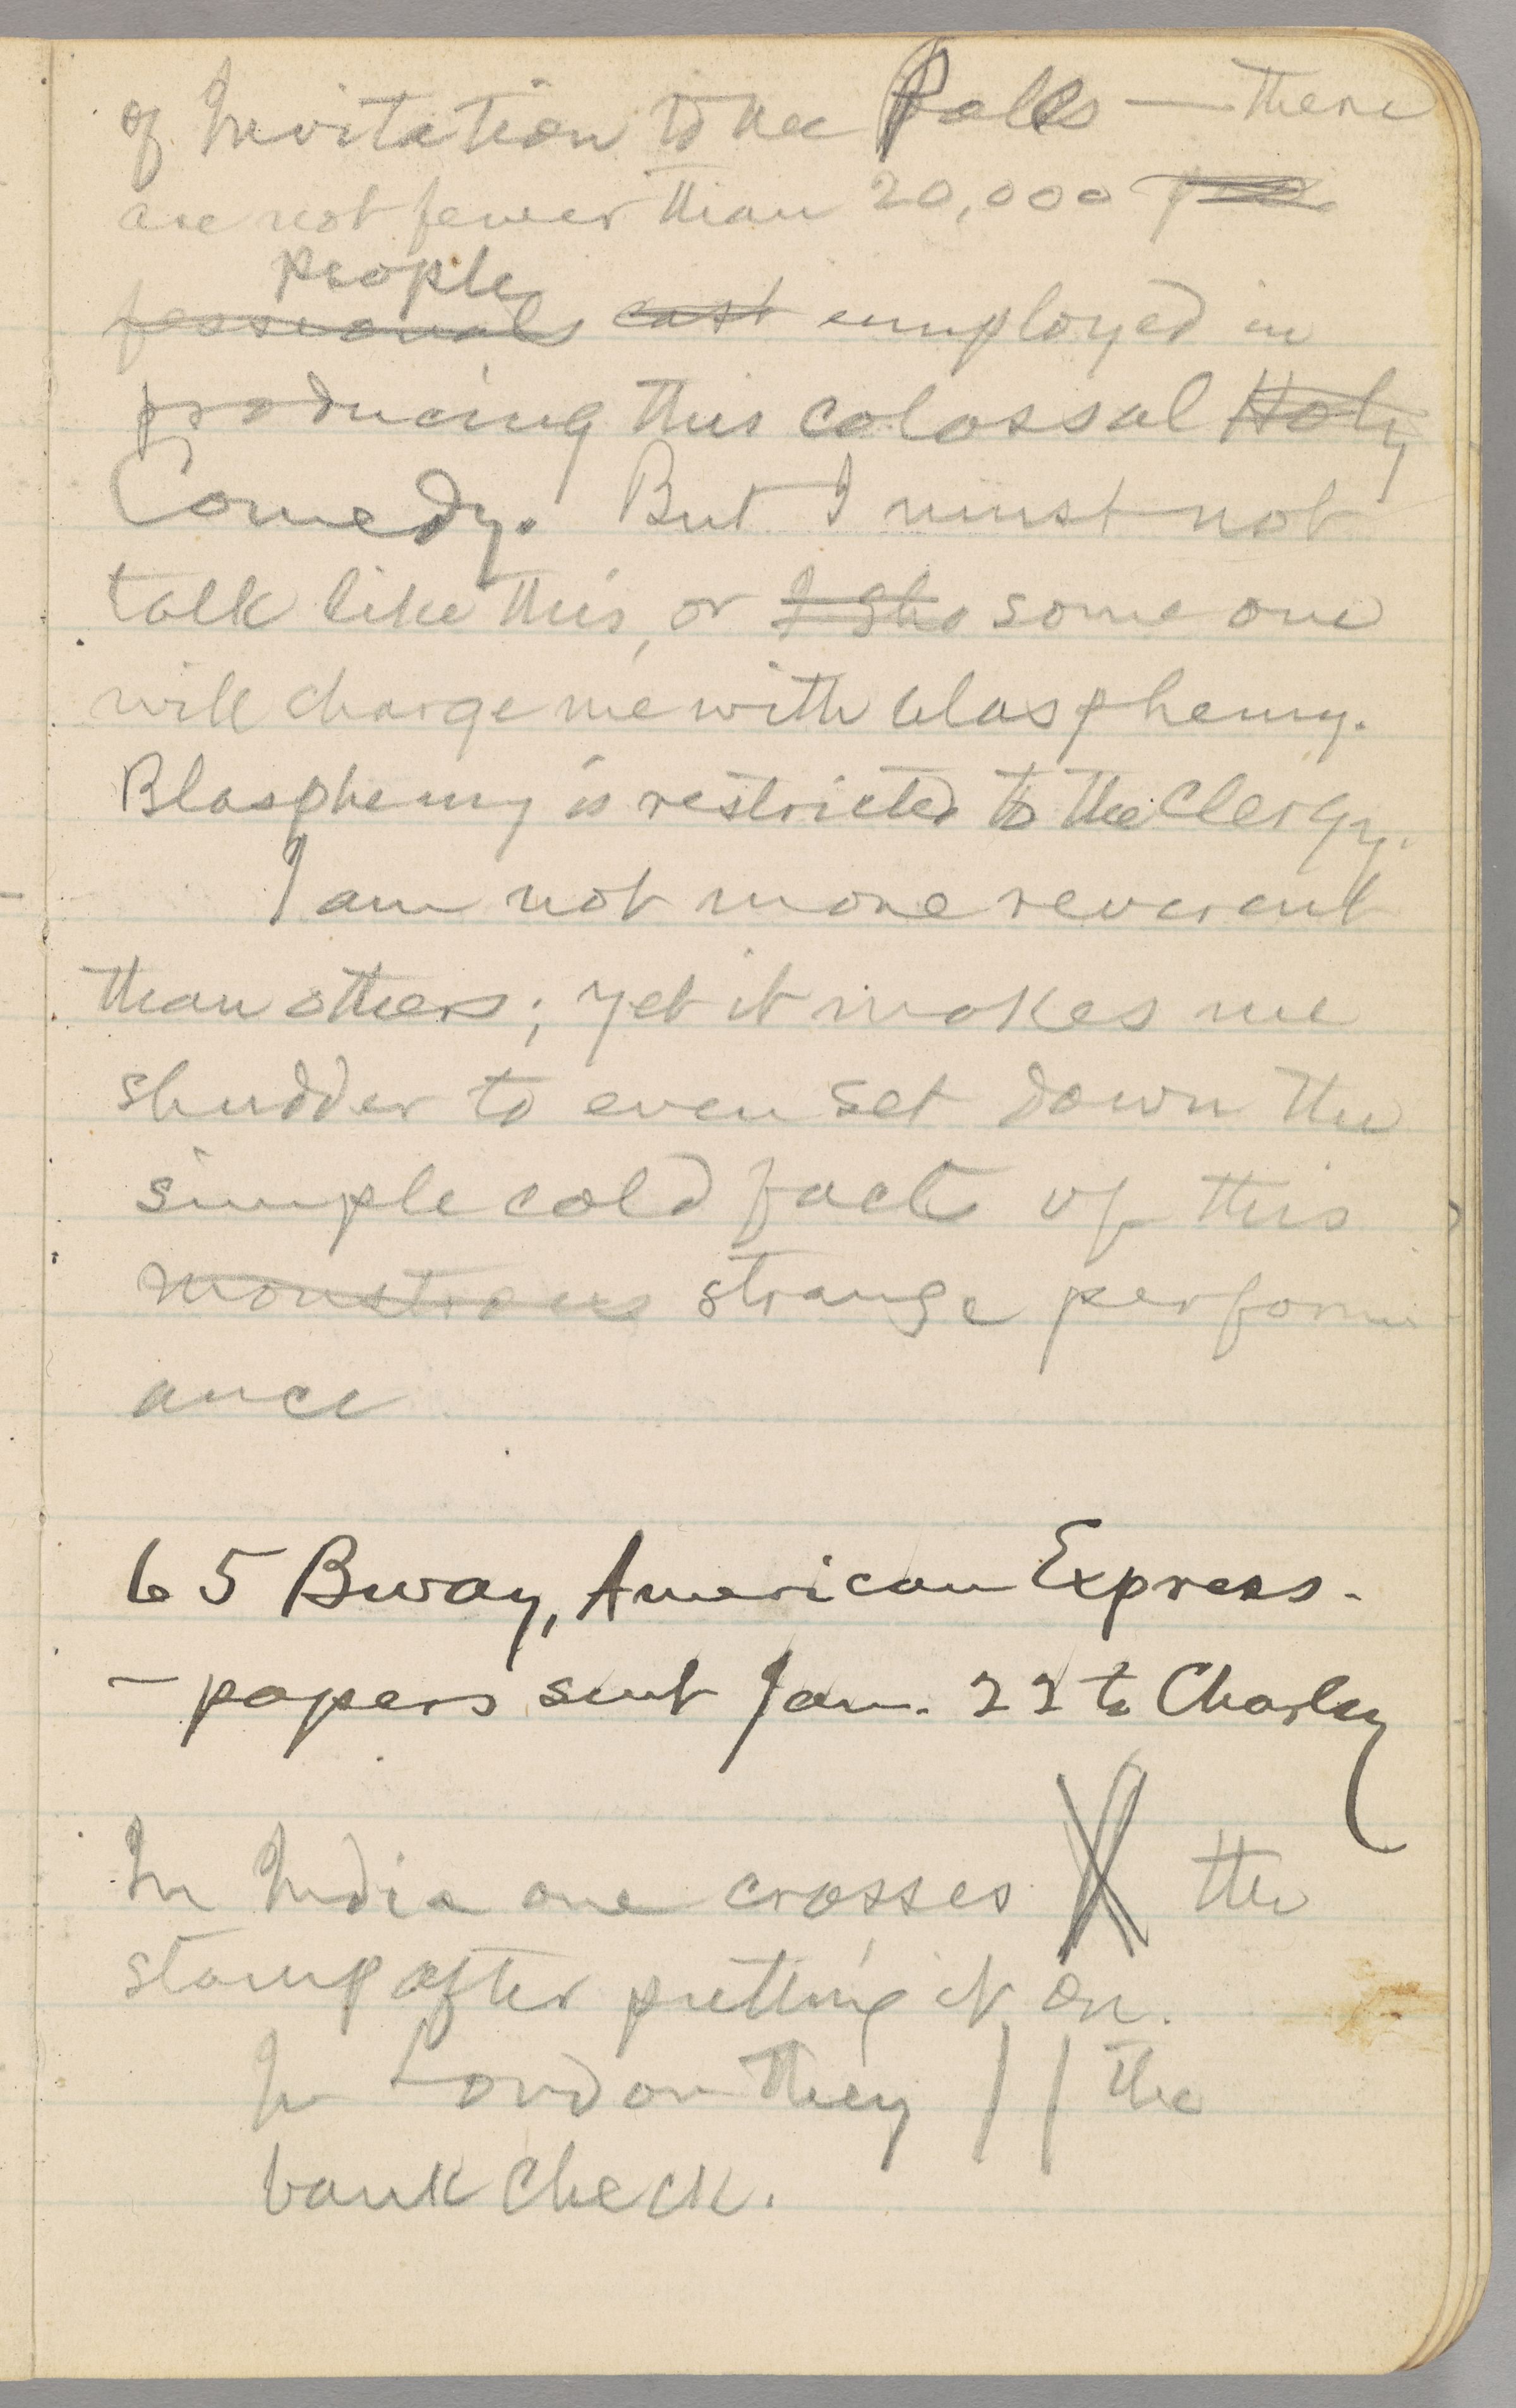 of Invitation to the Polls — there
are not fewer than 20,000 pro
people
fessionals cast employed in
producing this colossal Holy
Comedy. But I must not
talk like this, or I sho some one
will charge me with blasphemy.
Blasphemy is restricted to the Clergy.
I am not more reverent
than others; yet it makes me
shudder to even set down the
simple cold facts of this
monstrous strange perform
ance
65 Bway, American Express.
– papers sent Jan. 22 to Charley
In India one crosses X the
stamp after putting it on.
In London they || the
bank check.